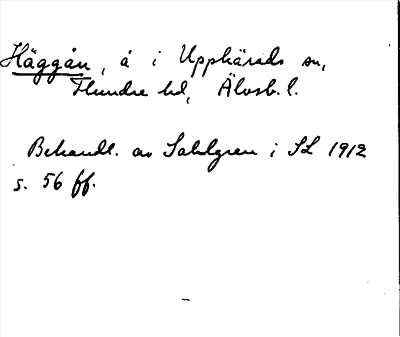 Häggån, å i Upphärads sn,
Flundre hd, Älvsb. l.
Behandl. av Sahlgren i SL 1912
s. 56 ff.